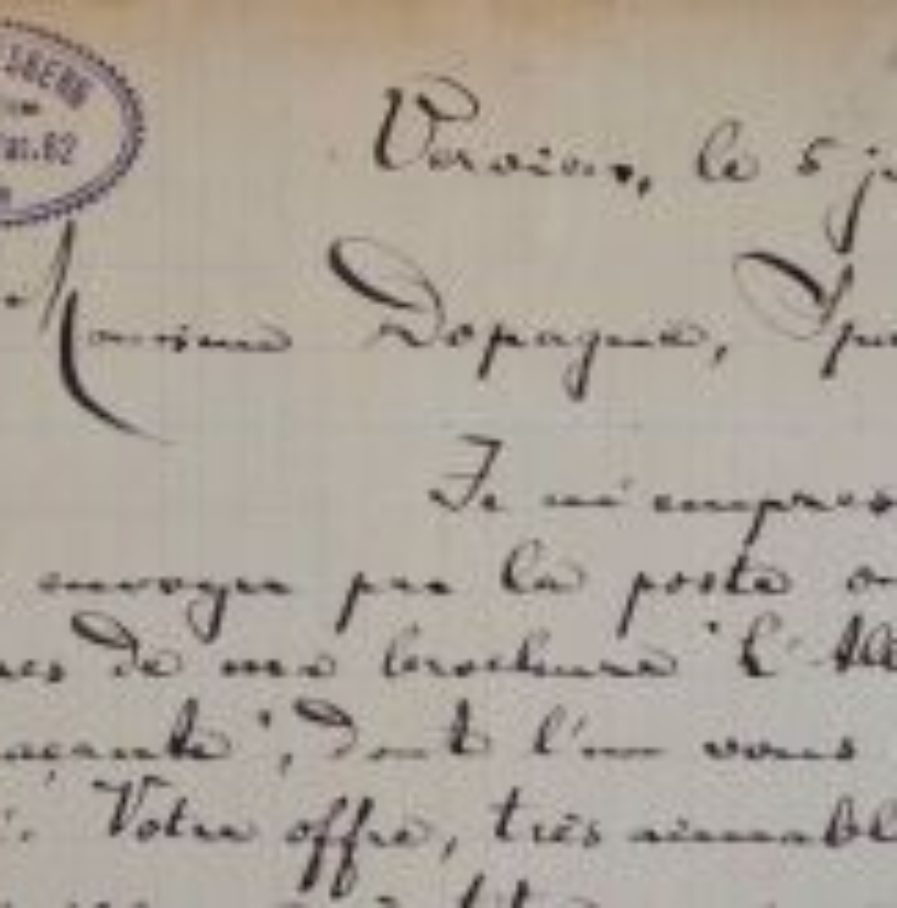 Verviers, le 5 ju
Monsieur Dopagne, Spa
Je m'empres
envoyer par la poste
de ma brochure "L'All
açante", dont l'un vous
Votre offre, très aimabl